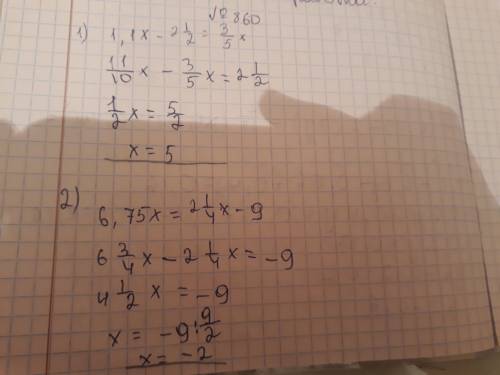 №860
1) 1,1x - 2 1/2 = 3/5 x
11/10 x - 3/5 x = 2 1/2
1/2 x = 5/2
x = 5
2)
6,75x = 2 1/4 x - 9
6 3/4 x - 2 1/4 x = -9
4 1/2 x = -9
x = -9 : 9/2
x = -2